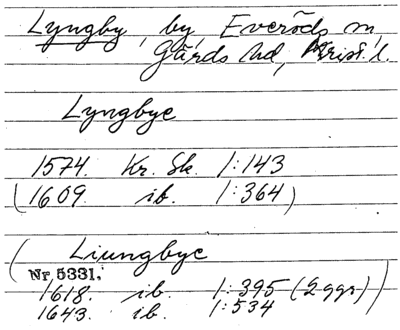 Lyngby, by, Everöds sn,
Gärds hd, Krist. l.
Lyngbye
1574. Kr. Sk. 1:143
(1609. ib. 1:364)
(Liungbye
Nr. 5331.
1618. ib. 1:395 (2 ggr)
1643. ib. 1:534)